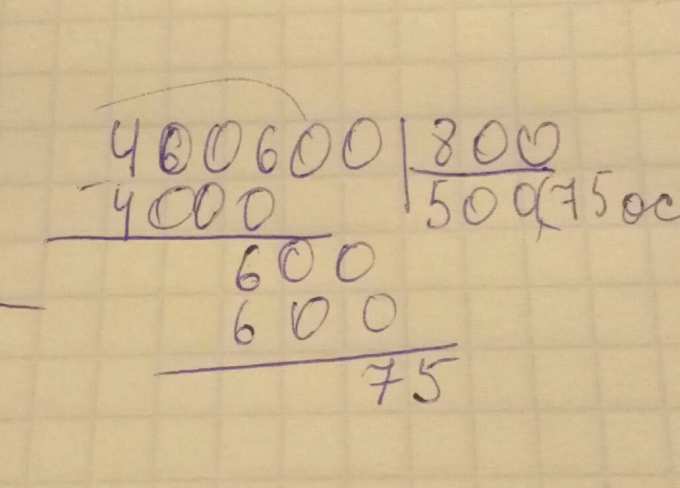 400600 800
- 4000 500(75 ос
600
- 600
75